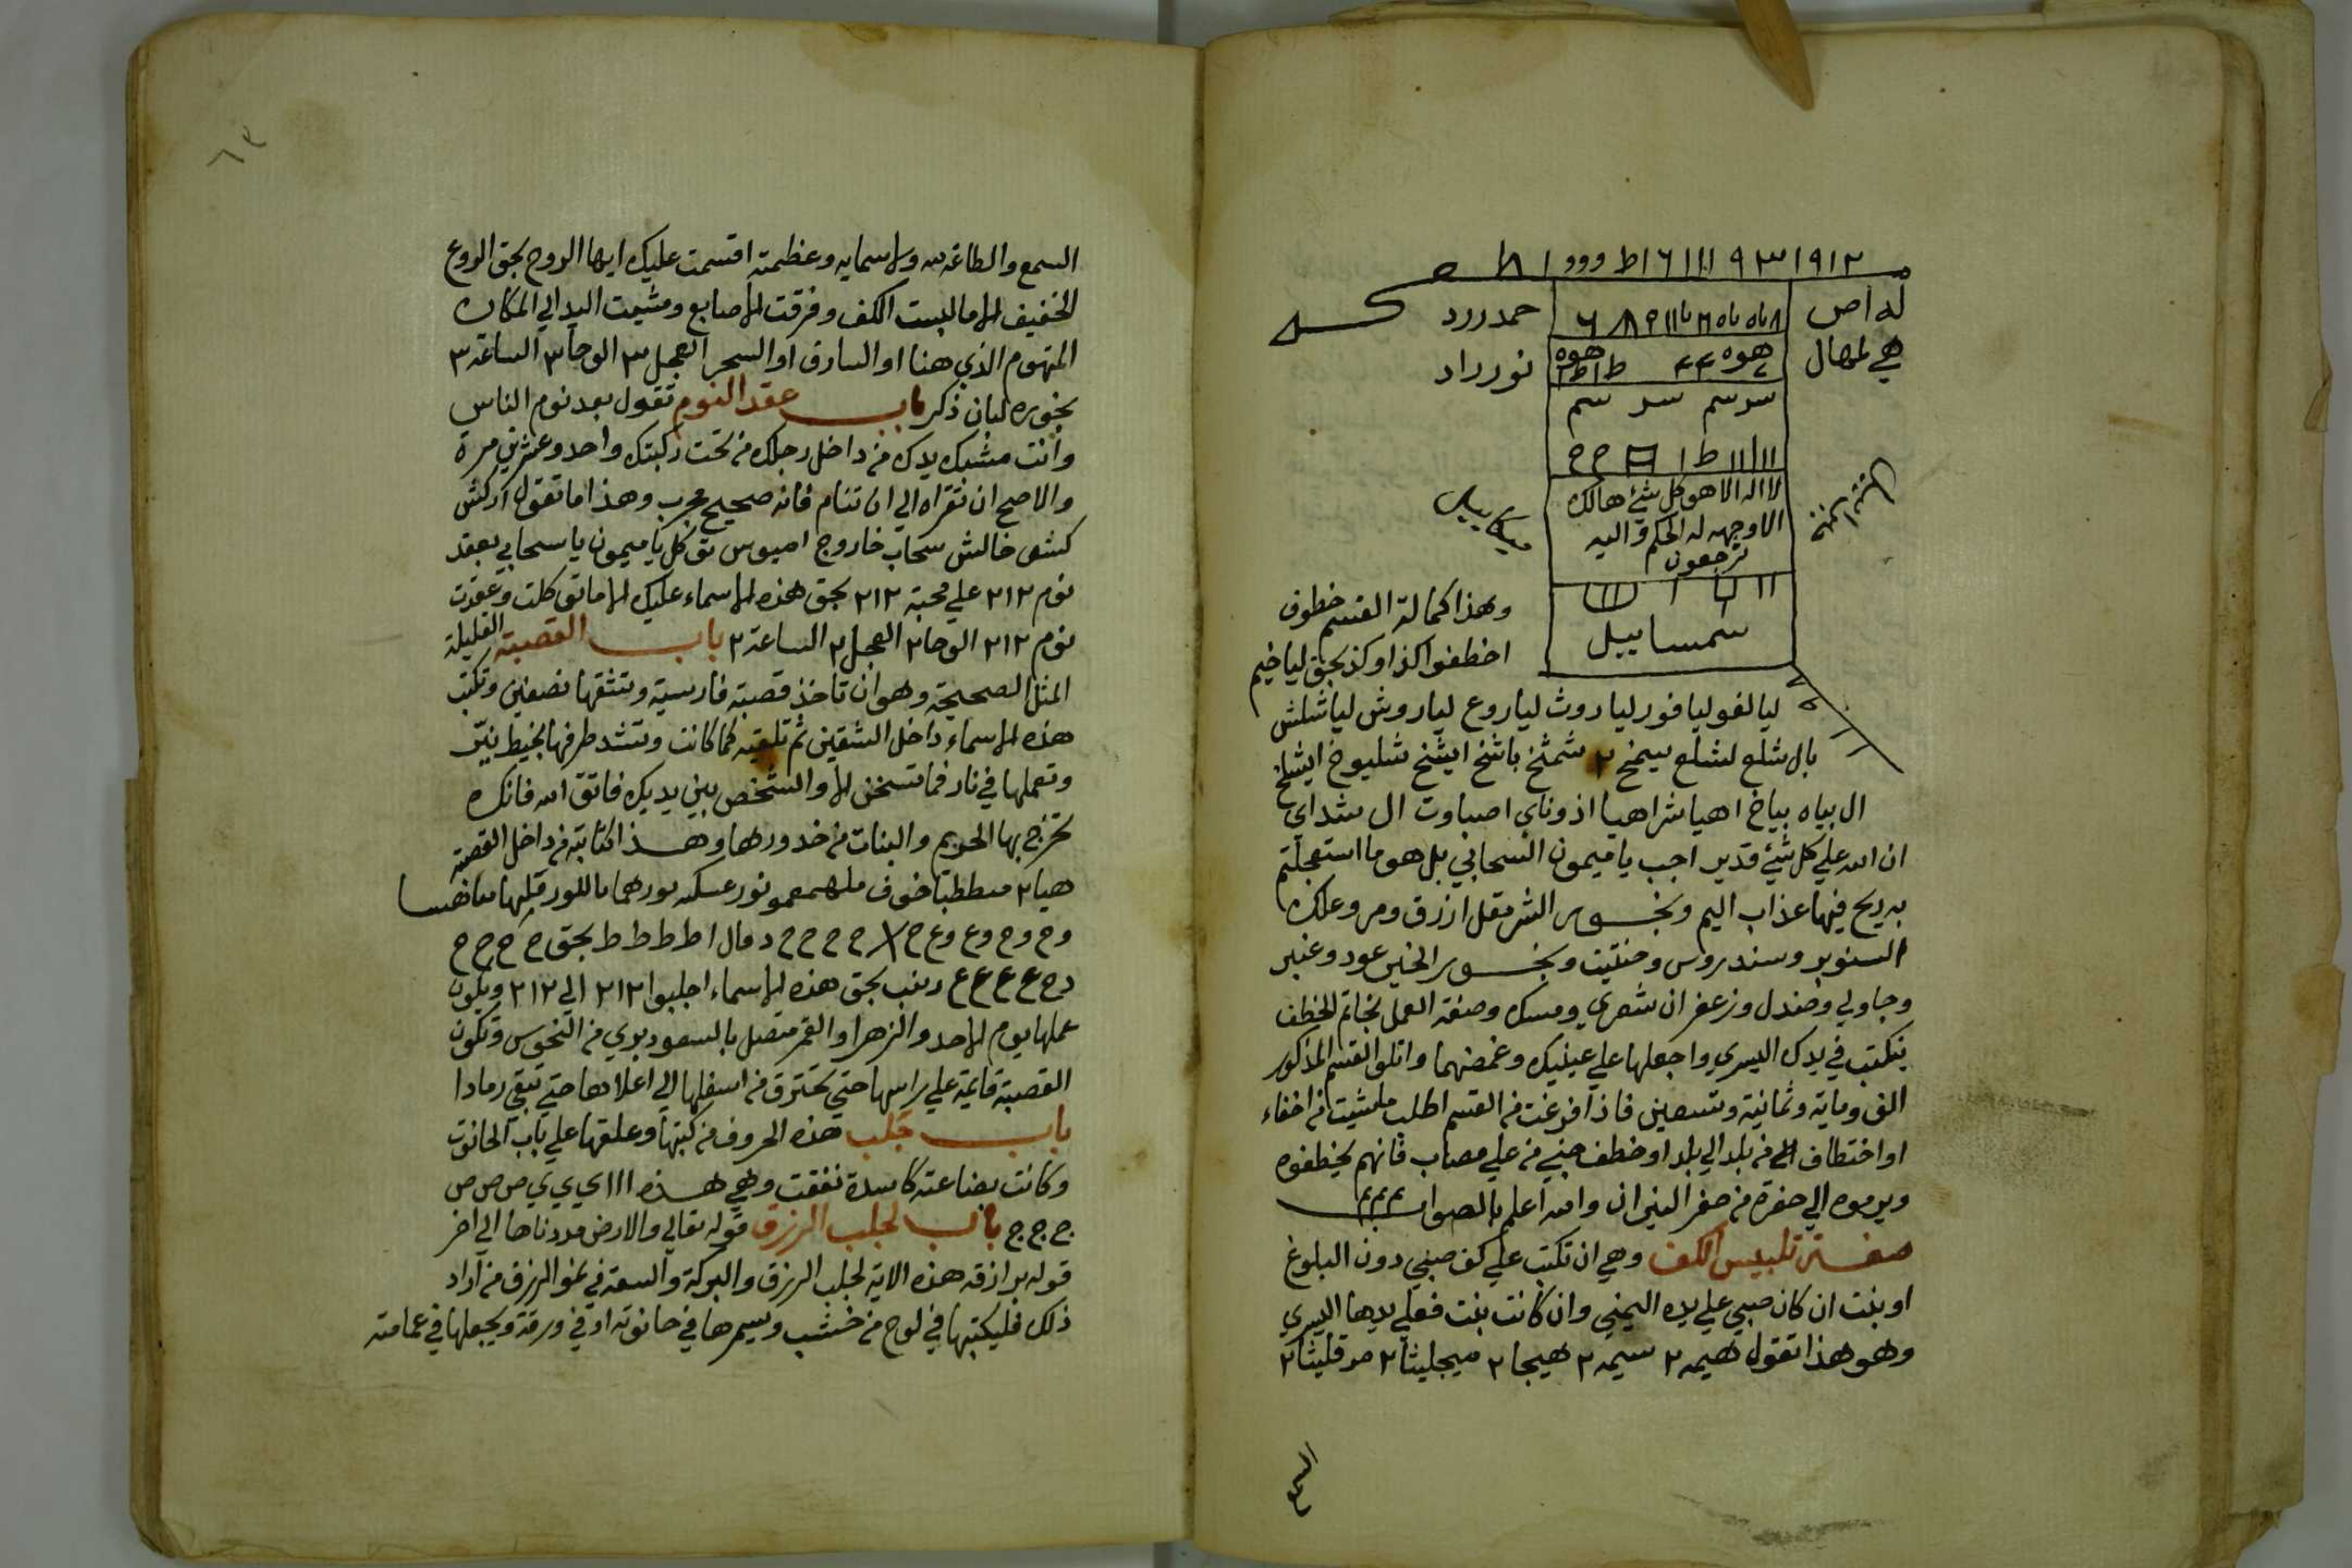 ١٩١٢ ٩٣ ١١١ ١٦ ط ووو ١
له اص
حمد ررد
هي لمهال
هوه ط ١ ط هوه
نور راد
سر سم سر سم
١١١١ ط ١
لا اله الا هو كل شئ هالك
الا وجهه له الحكم واليه
ترجعون
ميكاييل
سمساييل
وهذا كمالة القسم خطوف
اخطفوا كذا وكذا بحق لياخيم
ليالغو ليافور لياروث لياروع لياروش لياشلش
بال شلع لشلع سيمخ ٢ شمشخ باشخ ايشخ شليوخ ايشلخ
ال بياه بياخ اهيا شراهيا اذوناي اصباوت ال شداي
ان الله علي كل شئ قدير اجب يا ميمون السحابي بل هو ما استعجلتم
به ريح فيها عذاب اليم وبخور الشر مقل ازرق ومر وعلك
السنوبر وسندروس وحنتيت وبخور الخير عود وعنبر
وجاولي وصندل وزعفران شعري ومسك وصفة العمل بخاتم الخطف
تكتب في يدك اليسري واجعلها علي عينيك وغمضهما واتلوا القسم المذكور
الف وماية وثمانية وتسعين فاذا فرغت من القسم اطلب ما شيت من اخفاء
او اختطاف من بلد الي بلد او خطف جني من علي مصاب فانهم يخطفوه
ويرموه الي حفرة من حفر النيران والله اعلم بالصواب
صفة تلبيس الكف وهي ان تكتب علي كف صبي دون البلوغ
او بنت ان كان صبي علي يده اليمني وان كانت بنت فعلي يدها اليسري
وهو هذا تقول هيمه ٢ سيمه ٢ هيجا ٢ ميجليثا ٢ مرقليثا ٢
السمع
٦٣
السمع والطاعة لله ولاسمايه وعظمته اقسمت عليك ايها الروح بحق الروع
الخفيف الا ما لبست الكف وفرقت الاصابع ومشيت اليد الي المكان
المتهوم الذي هنا او السارق او السحر العجل ٣ الوحا ٣ الساعة ٣
بخوره لبان ذكر باب عقد النوم تقول بعد نوم الناس
وانت مشبك يدك من داخل رجلك من تحت ركبتك واحد وعشرين مرة
والاصح ان تقراه الي ان تنام فانه صحيح مجرب وهذا ما تقول اركش
كشف خالش سحاب خاروج اميوس توكل يا ميمون يا سحابي بعقد
نوم ٢١٢ علي محبة ٢١٢ بحق هذه الاسماء عليك الا ما توكلت وعقدت
نوم ٢١٢ الوحا ٢ العجل ٢ الساعة ٢ باب القصبة القليلة
المثل الصحيحة وهو ان تاخذ قصبة فارسية وتشقها نصفين وتكتب
هذه الاسماء داخل الشقين ثم تلقيه كما كانت وتشد طرفها بخيط نيّ
وتعملها في نار فما تسخن الا والشخص بين يديك فاتق الله فانك
تخرج بها الحريم والبنات من خدورها وهذا كتابته من داخل القصبة
هيا ٢ خوف
وح وح وع وع ح ح ح ح ح ح ط ط ط ط بحق ح ح ح ح
ع ع ع ع ع بحق هذه الاسماء اجلبوا ٢١٢ الي ٢١٢ ويكون
عملها يوم الاحد والزهرا والقمر متصل بالسعود بري من النحوس وتكون
القصبة قايمة علي راسها حتي تحترق من اسفلها الي اعلاها حتي تبقي رمادا
باب جلب هذه الحروف من كتبها وعلقها علي باب الحانوت
وكانت بضاعته كاسدة نفقت وهي هذه ا ا ا ي ي ي ي ص ص ص
ج ج ج باب لجلب الرزق قوله تعالي والارض مددناها الي اخر
قوله برازقه هذه الاية لجلب الرزق والبركة والسعة في نمو الرزق من اراد
ذلك فليكتبها في لوح من خشب ويسمرها في حانوته او في ورقة ويجعلها في عمامته